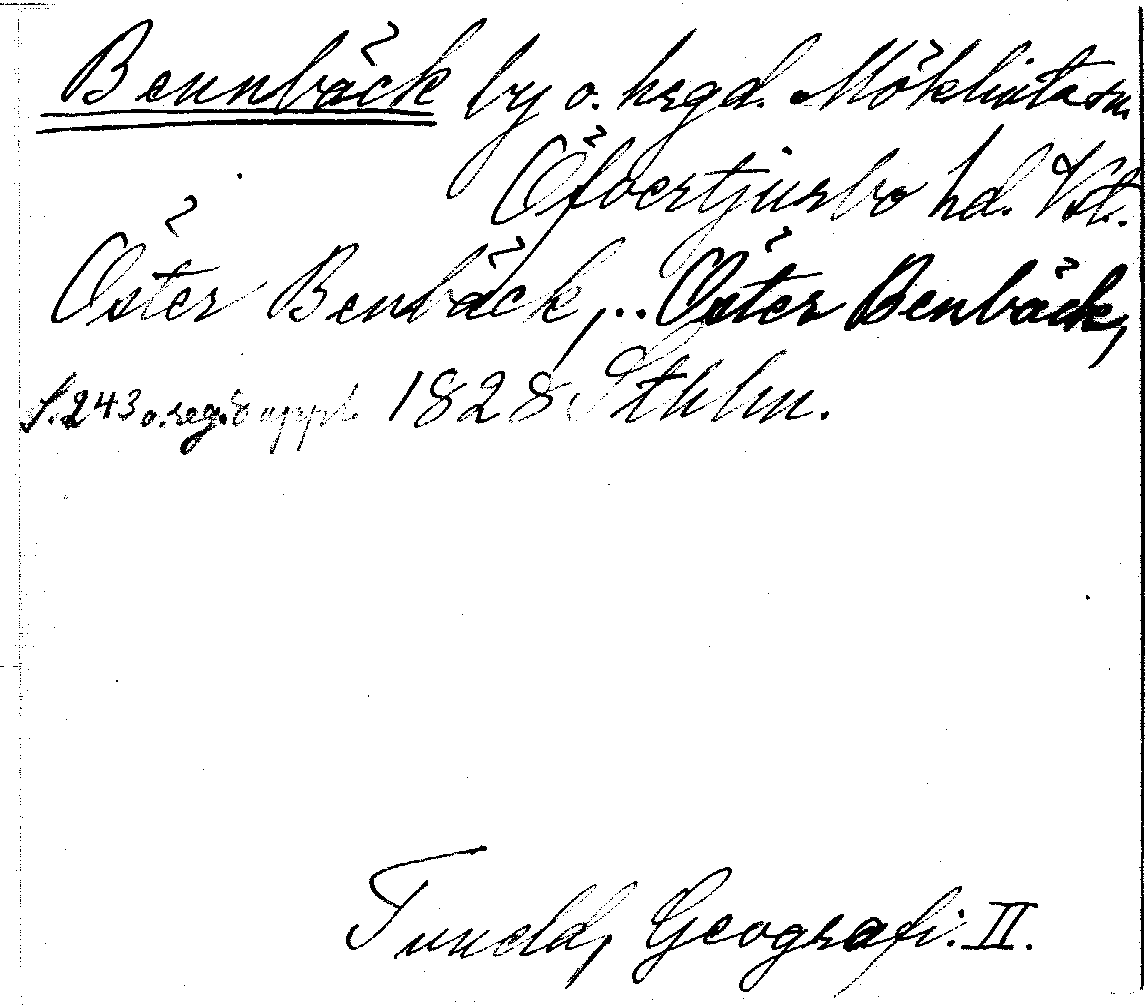 Bennbäck by o. hrgd. Möklinta sn.
Öfvertjurbo hd. Vst.
Öster Benbäck, .. Öster Benbäck,
S. 243 o. reg. o appl. 1828 Sthlm.
Tuneld, Geografi. II.